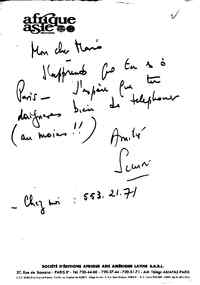 afrique
asie
Mon cher Mario
J'apprends que tu es à
Paris — J'espère que tu
daigneras bien de telephoner
(au moins !!)
Amitié
— Chez moi : 553.21.71
SOCIÉTÉ D'ÉDITIONS AFRIQUE ASIE AMÉRIQUE LATINE S.A.R.L.